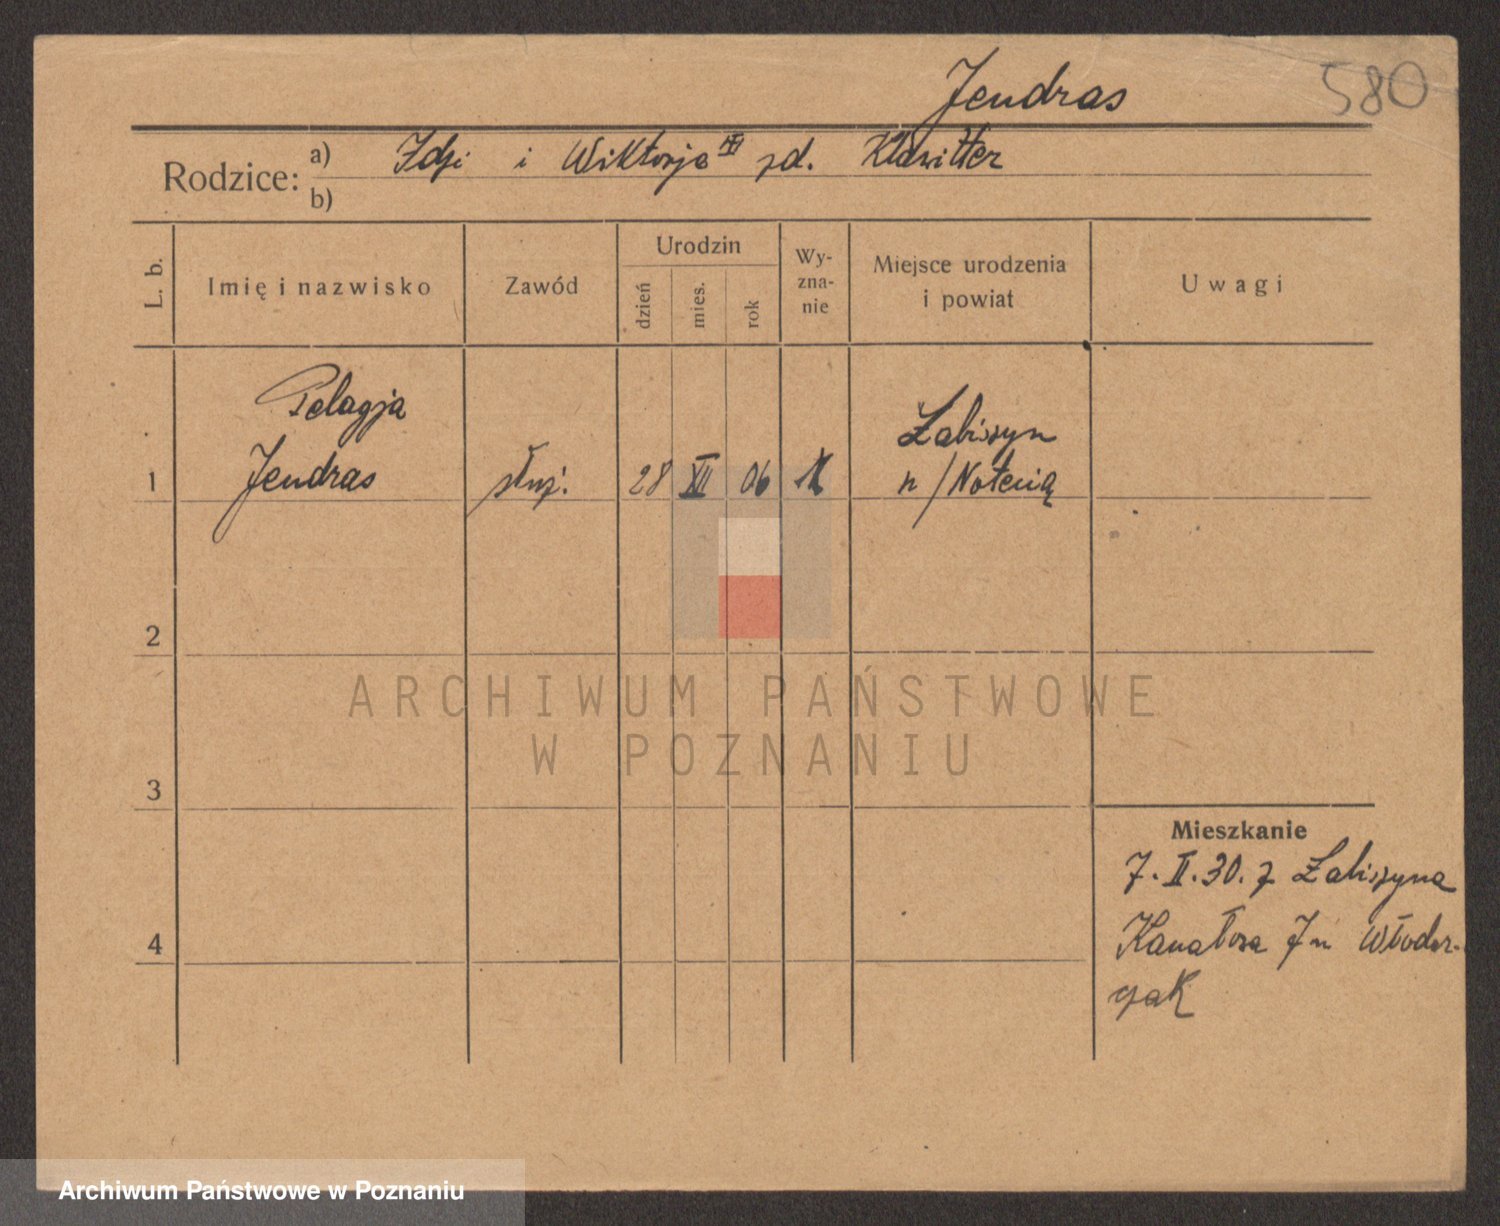 Jendras
580
Rodzice:
a) Idzi i Wiktorja zd. Klawitter
b)
L. b.
Imię i nazwisko
Zawód
Urodzin
dzień
mies.
rok
Wy-
zna-
nie
Miejsce urodzenia
i powiat
Uwagi
Pelagja
1 Jendras służ. 28 XII 06
Łabiszyn
n/Notecią
2
3
4
Mieszkanie
7.II.30. z Łabiszyna
7 m Włodar-
czak
ARCHIWUM PAŃSTWOWE
W POZNANIU
Archiwum Państwowe w Poznaniu